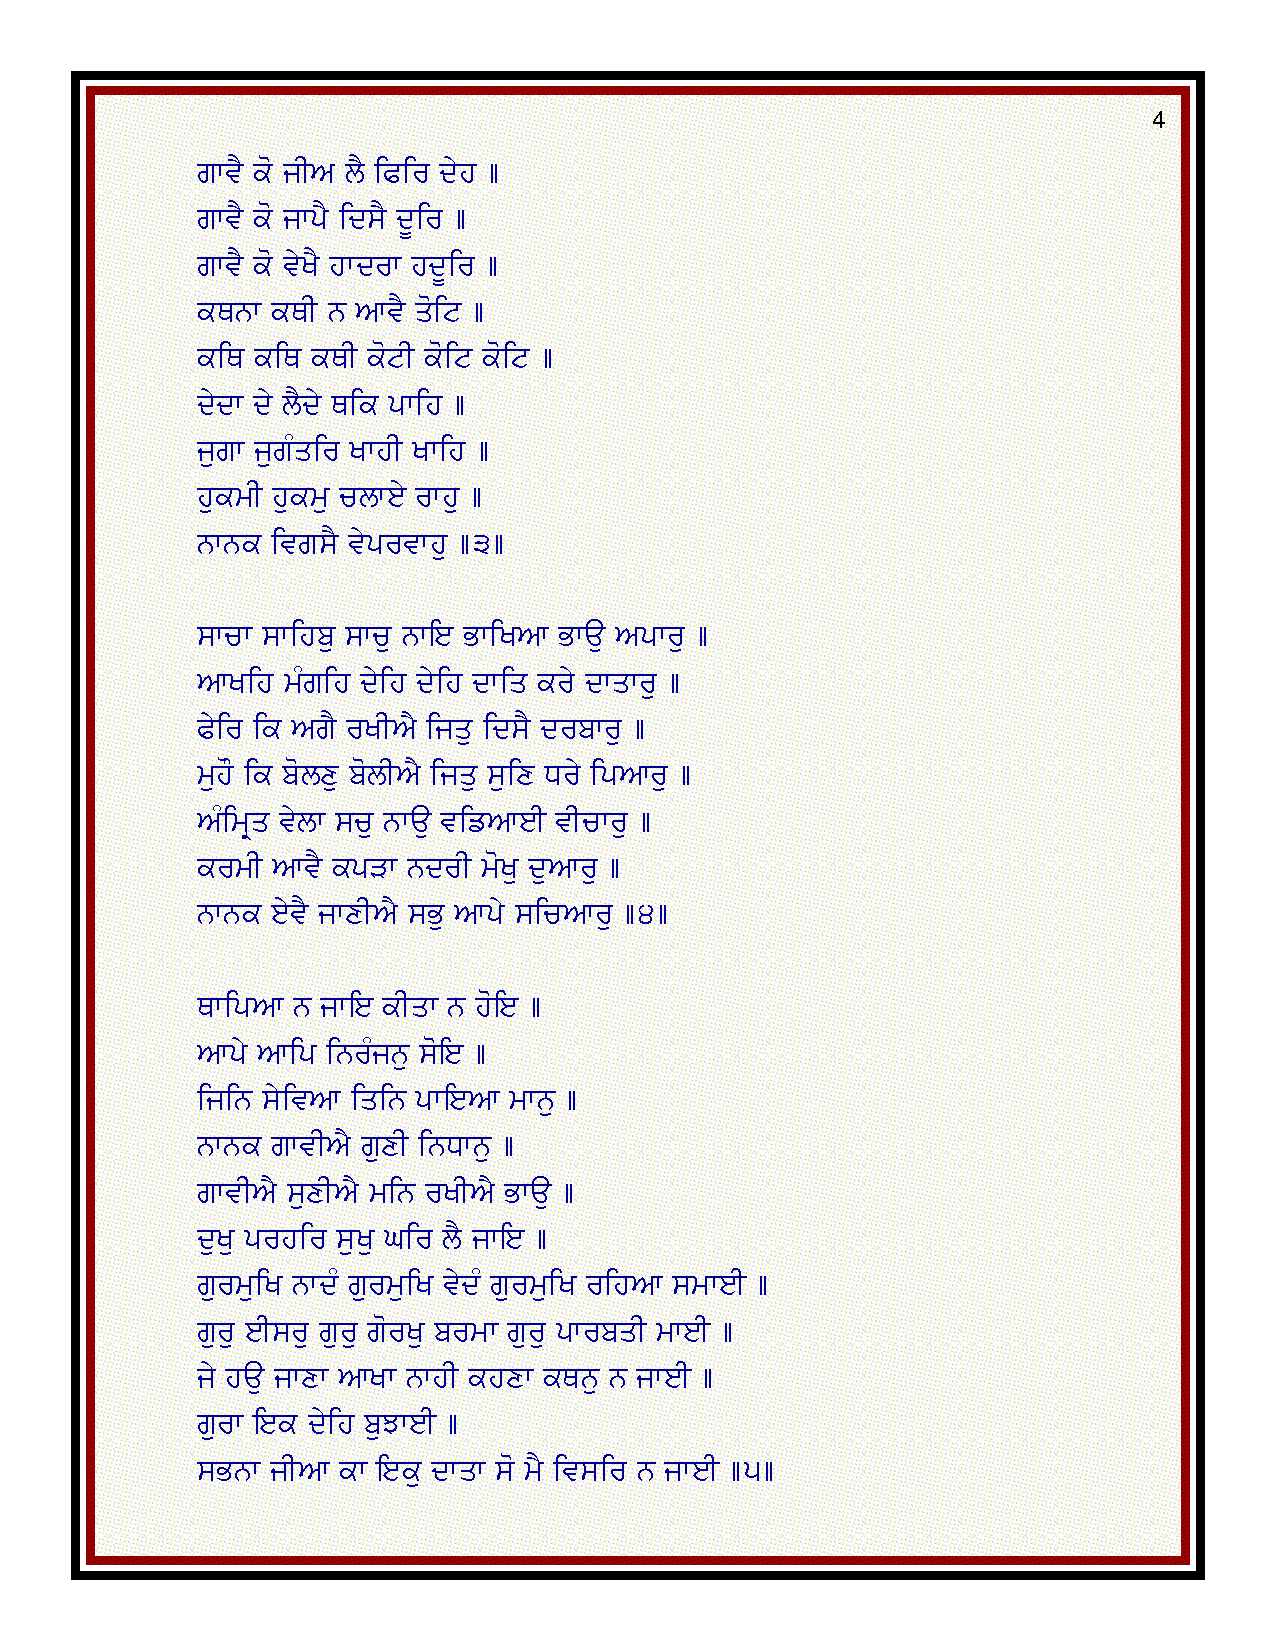 4
ਗਾਵੈ ਕੋ ਜੀਅ ਲੈ ਫਿਰਿ ਦੇਹ ॥
ਗਾਵੈ ਕੋ ਜਾਪੈ ਦਿਸੈ ਦੂਰਿ ॥
ਗਾਵੈ ਕੋ ਵੇਖੈ ਹਾਦਰਾ ਹਦੂਰਿ ॥
ਕਥਨਾ ਕਥੀ ਨ ਆਵੈ ਤੋਟਿ ॥
ਕਥਿ ਕਥਿ ਕਥੀ ਕੋਟੀ ਕੋਟਿ ਕੋਟਿ ॥
ਦੇਦਾ ਦੇ ਲੈਦੇ ਥਕਿ ਪਾਹਿ ॥
ਜੁਗਾ ਜੁਗੰਤਰਿ ਖਾਹੀ ਖਾਹਿ ॥
ਹੁਕਮੀ ਹੁਕਮੁ ਚਲਾਏ ਰਾਹੁ ॥
ਨਾਨਕ ਵਿਗਸੈ ਵੇਪਰਵਾਹੁ ॥੩॥
ਸਾਚਾ ਸਾਹਿਬੁ ਸਾਚੁ ਨਾਇ ਭਾਖਿਆ ਭਾਉ ਅਪਾਰੁ ॥
ਆਖਹਿ ਮੰਗਹਿ ਦੇਹਿ ਦੇਹਿ ਦਾਤਿ ਕਰੇ ਦਾਤਾਰੁ ॥
ਫੇਰਿ ਕਿ ਅਗੈ ਰਖੀਐ ਜਿਤੁ ਦਿਸੈ ਦਰਬਾਰੁ ॥
ਮੁਹੌ ਕਿ ਬੋਲਣੁ ਬੋਲੀਐ ਜਿਤੁ ਸੁਣਿ ਧਰੇ ਪਿਆਰੁ ॥
ਅੰਮ੍ਰਿਤ ਵੇਲਾ ਸਚੁ ਨਾਉ ਵਡਿਆਈ ਵੀਚਾਰੁ ॥
ਕਰਮੀ ਆਵੈ ਕਪੜਾ ਨਦਰੀ ਮੋਖੁ ਦੁਆਰੁ ॥
ਨਾਨਕ ਏਵੈ ਜਾਣੀਐ ਸਭੁ ਆਪੇ ਸਚਿਆਰੁ ॥੪॥
ਥਾਪਿਆ ਨ ਜਾਇ ਕੀਤਾ ਨ ਹੋਇ ॥
ਆਪੇ ਆਪਿ ਨਿਰੰਜਨੁ ਸੋਇ ॥
ਜਿਨਿ ਸੇਵਿਆ ਤਿਨਿ ਪਾਇਆ ਮਾਨੁ ॥
ਨਾਨਕ ਗਾਵੀਐ ਗੁਣੀ ਨਿਧਾਨੁ ॥
ਗਾਵੀਐ ਸੁਣੀਐ ਮਨਿ ਰਖੀਐ ਭਾਉ ॥
ਦੁਖੁ ਪਰਹਰਿ ਸੁਖੁ ਘਰਿ ਲੈ ਜਾਇ ॥
ਗੁਰਮੁਖਿ ਨਾਦੰ ਗੁਰਮੁਖਿ ਵੇਦੰ ਗੁਰਮੁਖਿ ਰਹਿਆ ਸਮਾਈ ॥
ਗੁਰੁ ਈਸਰੁ ਗੁਰੁ ਗੋਰਖੁ ਬਰਮਾ ਗੁਰੁ ਪਾਰਬਤੀ ਮਾਈ ॥
ਜੇ ਹਉ ਜਾਣਾ ਆਖਾ ਨਾਹੀ ਕਹਣਾ ਕਥਨੁ ਨ ਜਾਈ ॥
ਗੁਰਾ ਇਕ ਦੇਹਿ ਬੁਝਾਈ ॥
ਸਭਨਾ ਜੀਆ ਕਾ ਇਕੁ ਦਾਤਾ ਸੋ ਮੈ ਵਿਸਰਿ ਨ ਜਾਈ ॥੫॥